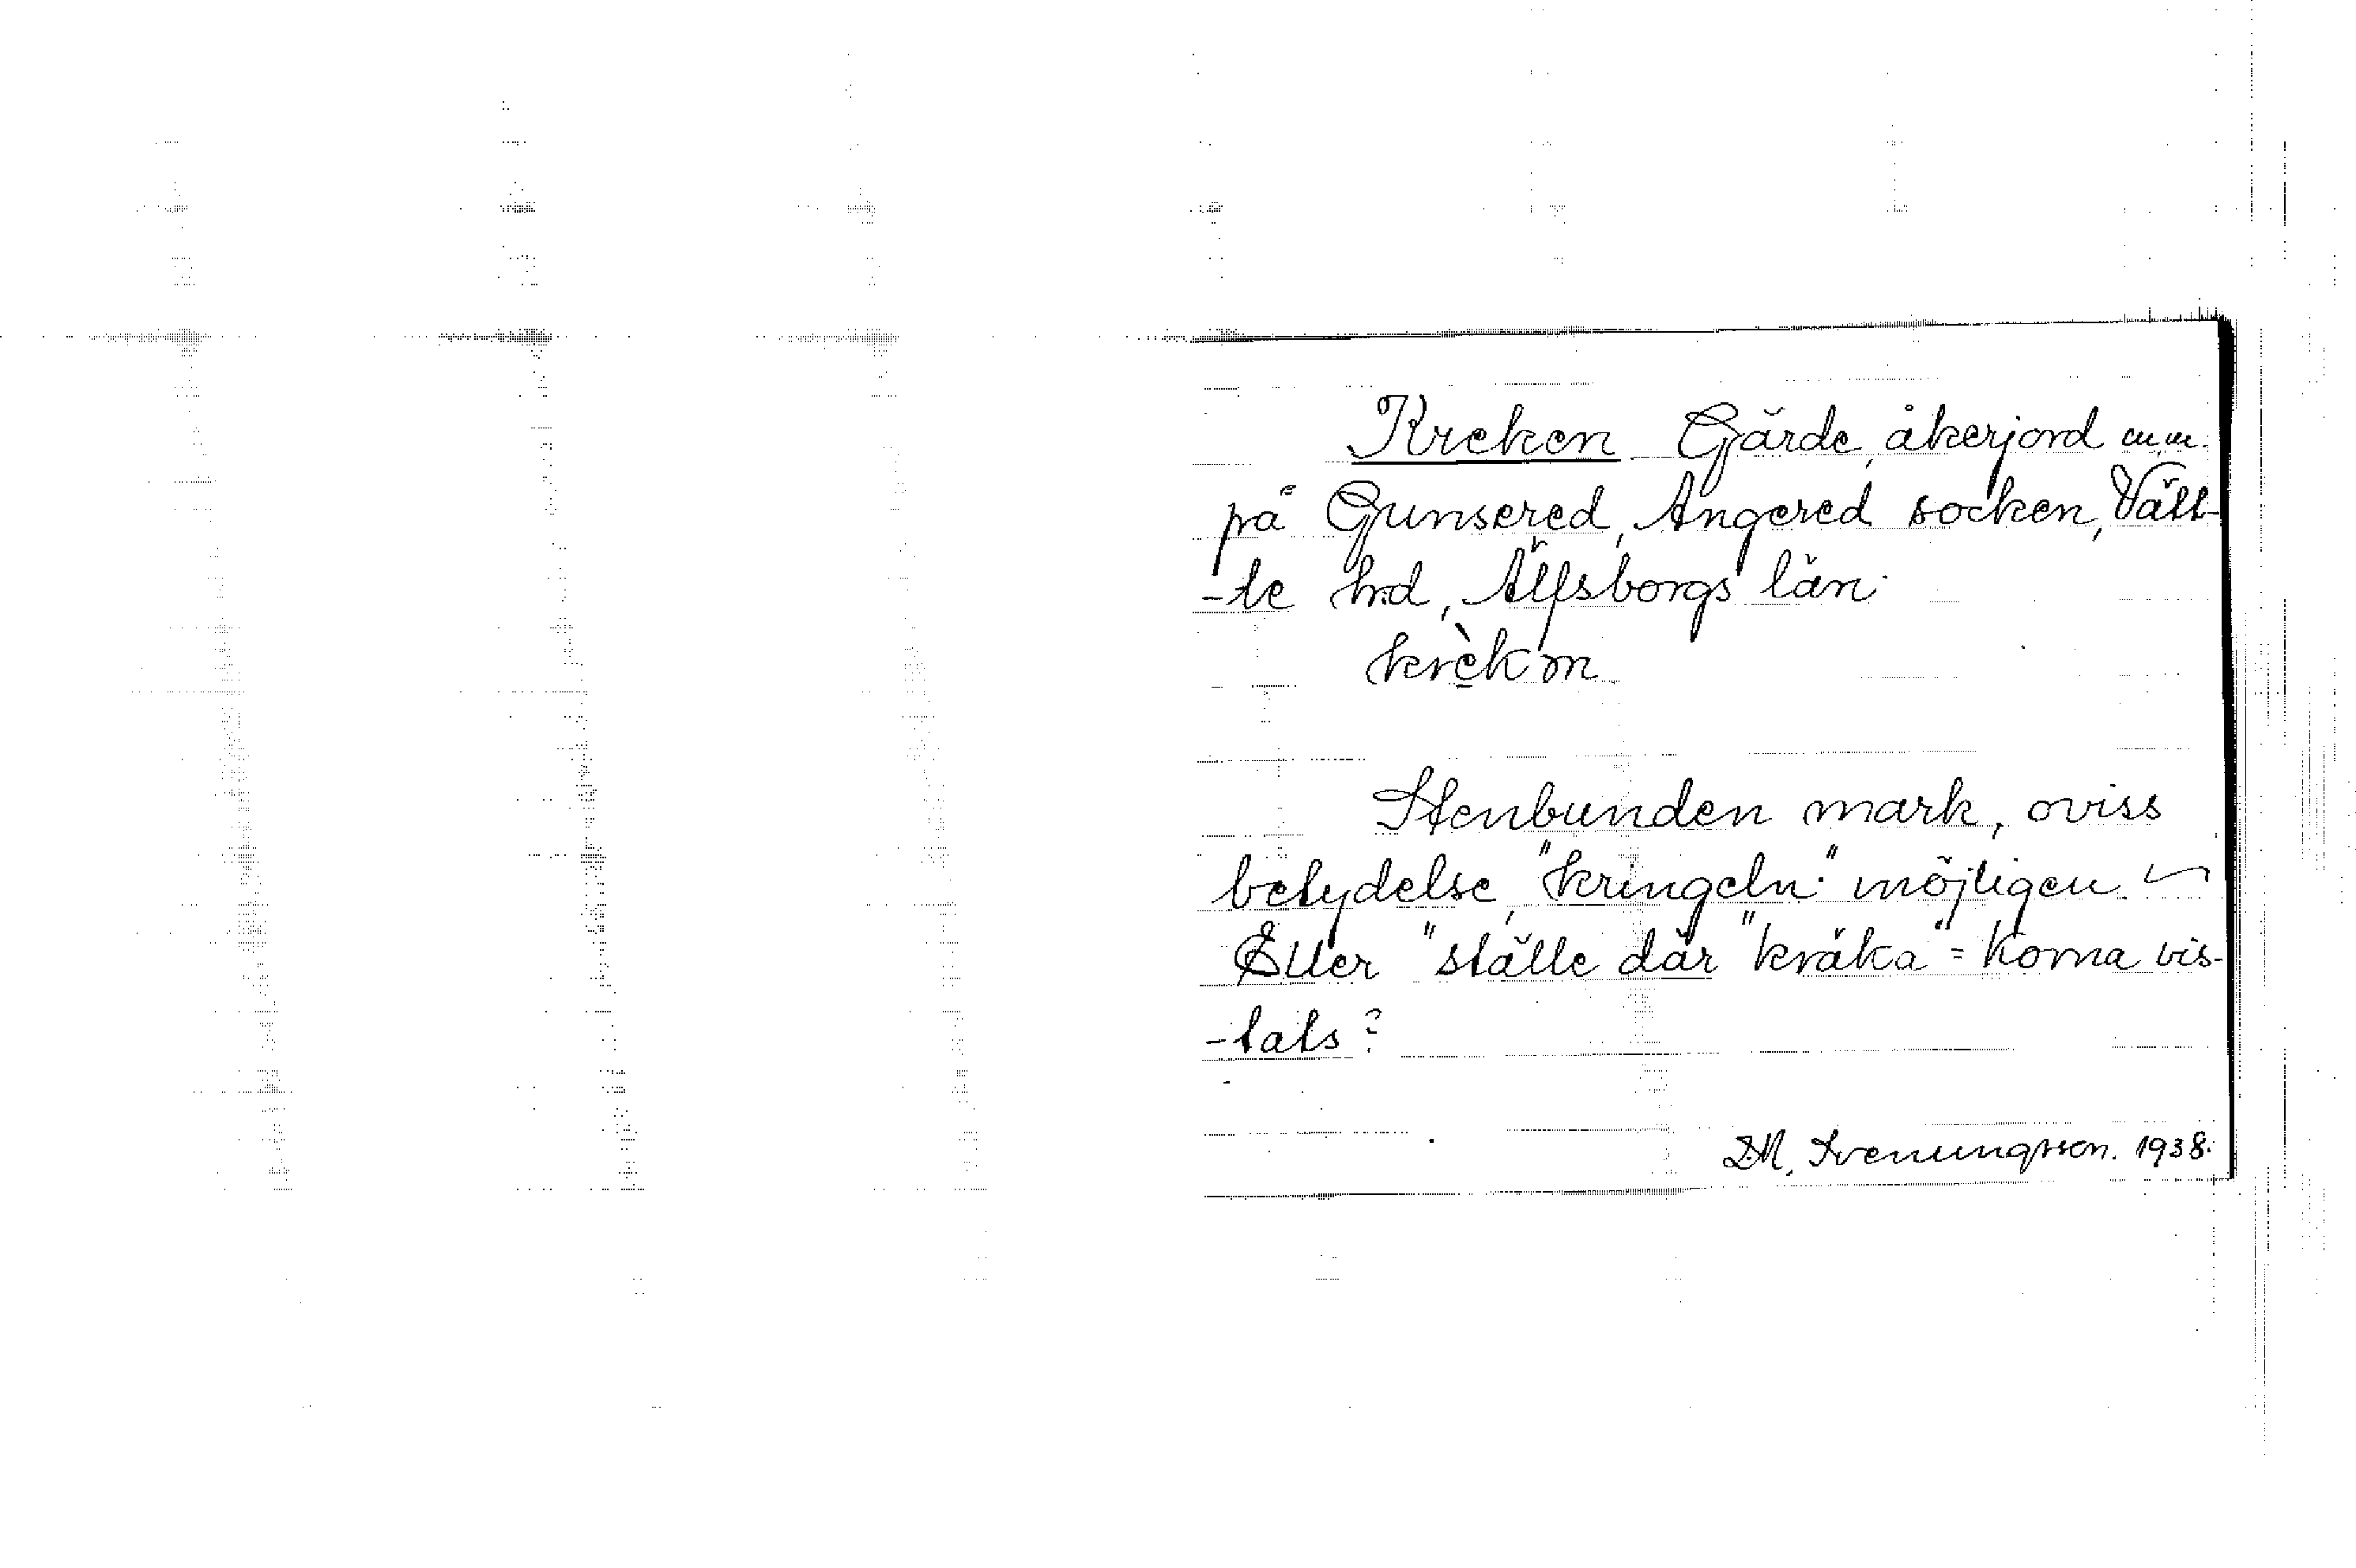 Kreken Gärde, åkerjord m.m.
på Gunsered, Angered socken, Vätt-
-le hd, Älfsborgs län.
krèkm
Stenbunden mark, oviss
betydelse, "kringeln" möjligen.
Eller "ställe där "kräka" = korna vis-
-tats?
D.M. Svenungsson. 1938.